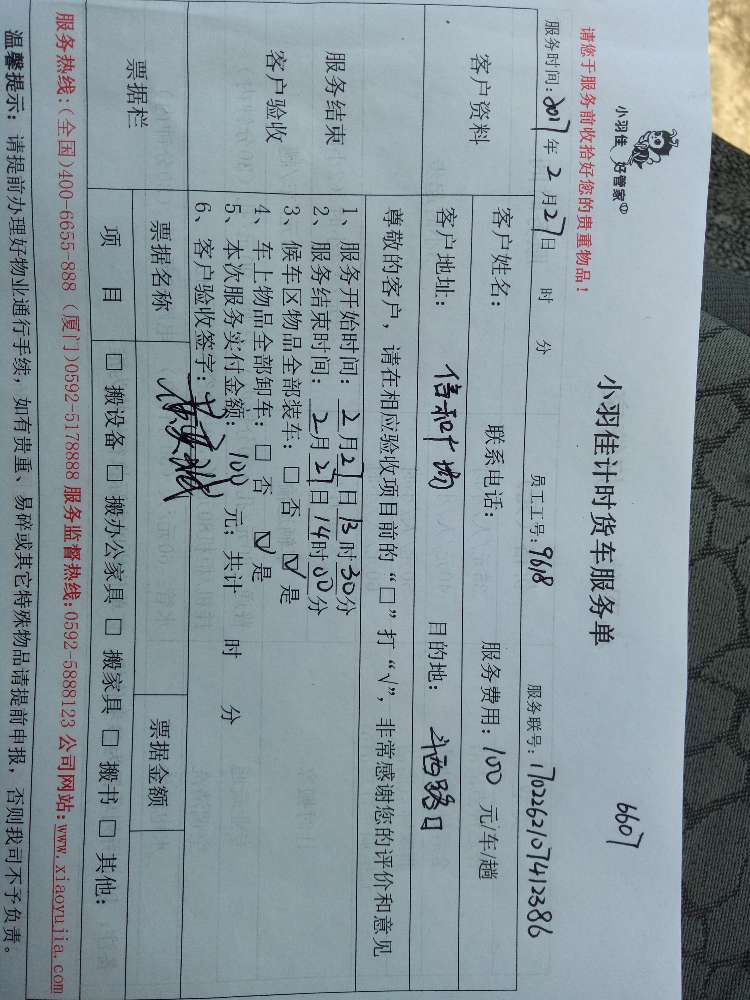 小羽佳 好管家
6607
小羽佳计时货车服务单
请您于服务前收拾好您的贵重物品！
服务时间：2017年2月27日 时 分 员工工号：9618 服务联号：1702262107412386
客户资料
客户姓名： 联系电话： 服务费用：100 元/车/趟
客户地址：信和广场 目的地：斗西路口
服务结束
客户验收
尊敬的客户，请在相应验收项目前的“□”打“√”，非常感谢您的评价和意见
1、服务开始时间：2月27日13时30分
2、服务结束时间：2月27日14时00分
3、候车区物品全部装车：□ 否 ☑ 是
4、车上物品全部卸车：□ 否 ☑ 是
5、本次服务实付金额：100 元；共计 时 分
6、客户验收签字：
票据栏
票据名称 票据金额
项 目 □ 搬设备 □ 搬办公家具 □ 搬家具 □ 搬书 □ 其他：
服务热线：(全国)400-6655-888（厦门)0592-5178888 服务监督热线：0592-5888123 公司网站：www.xiaoyujia.com
温馨提示：请提前办理好物业通行手续，如有贵重、易碎或其它特殊物品请提前申报，否则我司不予负责。